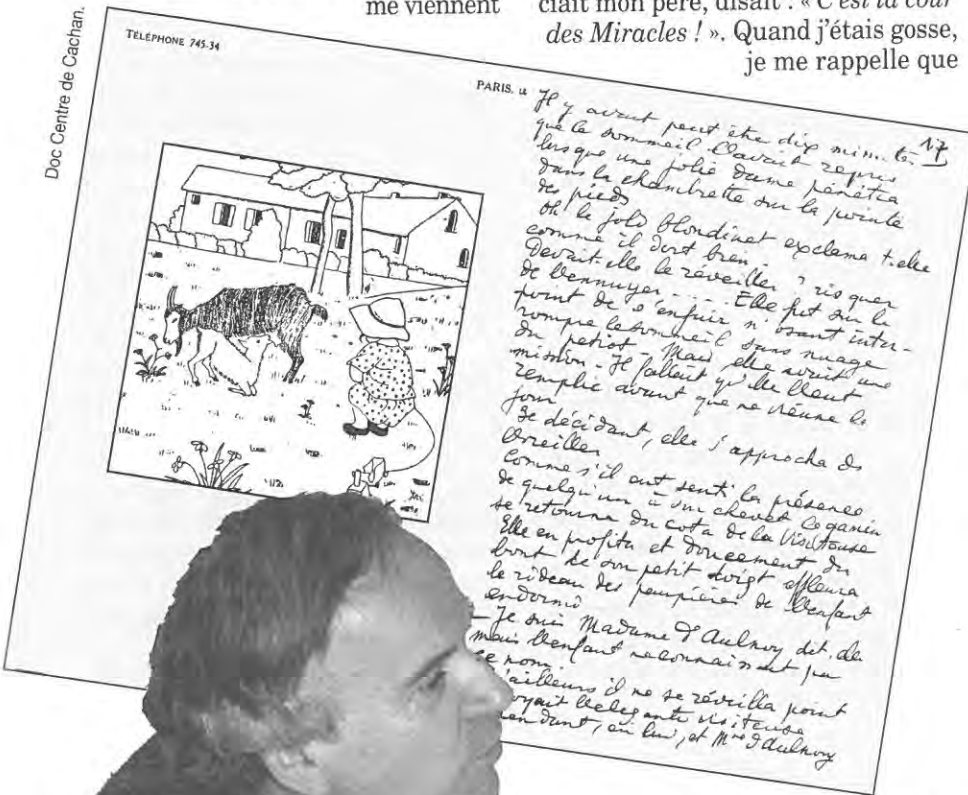 me viennent
ciait mon père, disait : « C'est la cour
des Miracles ! ». Quand j'étais gosse,
je me rappelle que
Doc Centre de Cachan.
TÉLÉPHONE 745.34
PARIS, LE
17
Il y avait peut être dix minutes
que le sommeil l'avait repris
lorsque une jolie dame pénétra
dans la chambrette sur la pointe
des pieds
Oh le joli blondinet exclama t-elle
comme il dort bien.
Devait-elle le réveiller ? risquer
de l'ennuyer.... Elle fut sur le
point de s'enfuir n'osant inter-
rompre le sommeil sans nuage
du petiot. Mais elle avait une
mission. Il fallait qu'elle l'eut
remplie avant que ne vienne le
jour
Se décidant, elle s'approcha de
l'oreiller
Comme s'il eut senti la présence
de quelqu'un à son chevet le gamin
se retourna du coté de la visiteuse
Elle en profita et doucement du
bout de son petit doigt effleura
le rideau des paupières de l'enfant
endormi
— Je suis Madame d'Aulnoy dit.
mais l'enfant ne connaissait pas
ce nom.
d'ailleurs il ne se réveilla point
voyait l'élégante visiteuse
en lui, et Mme d'Aulnoy